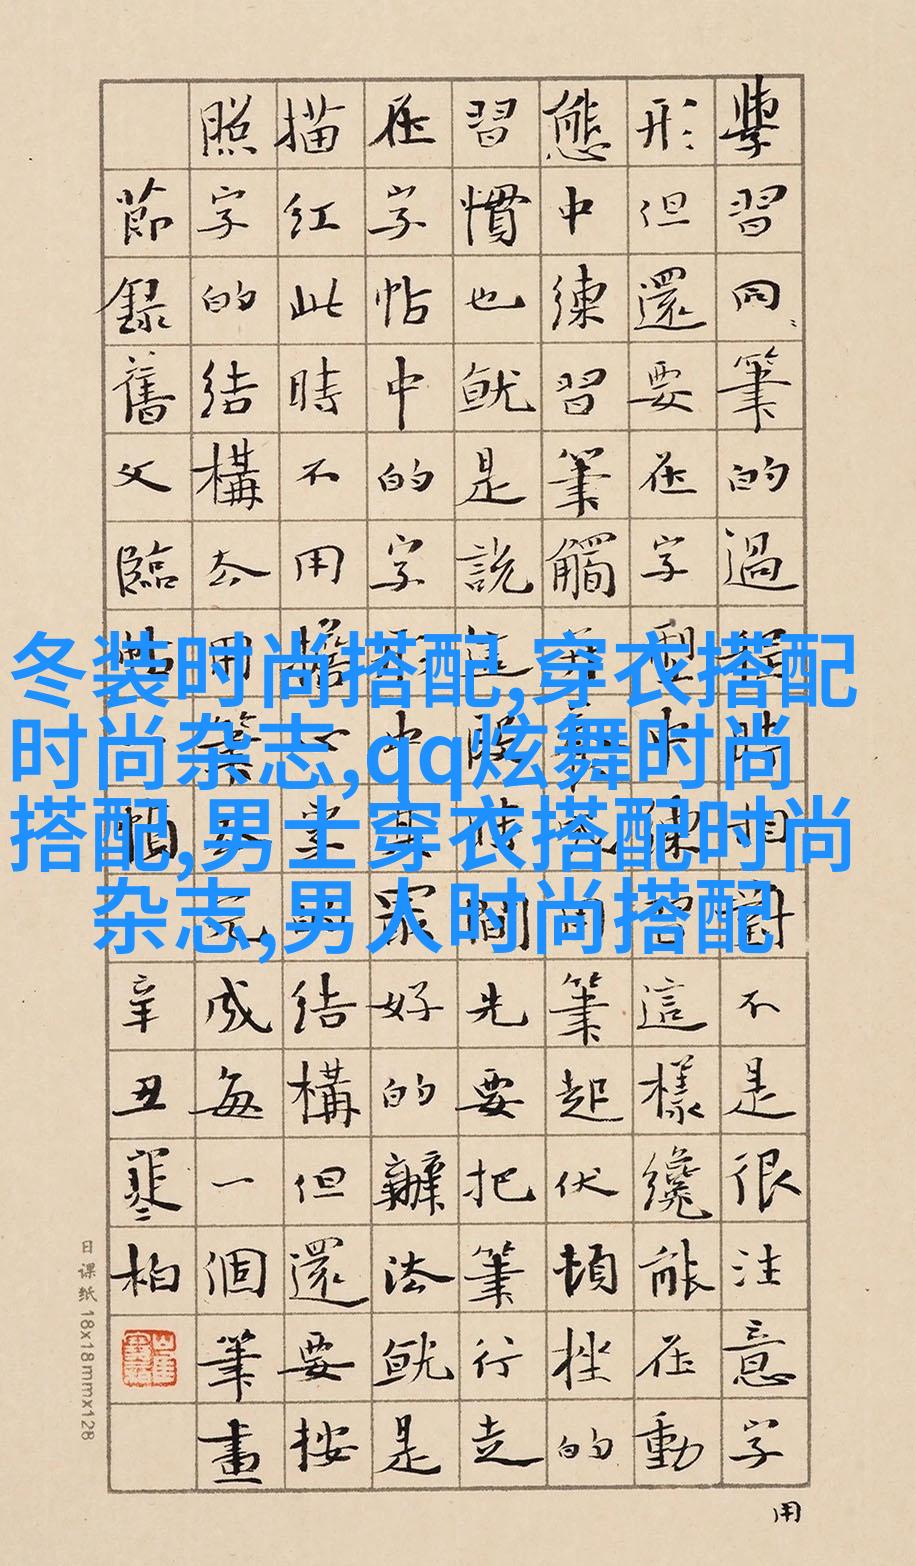 學習同筆的過程時相對不是很注意字
形但還要在字型中練習這樣纔能在動
態中練習筆觸用筆起伏頓挫的
習慣也就是說這段時間先要把筆行走
在字帖中的字中好的辦法就是
描紅此時不用擔心結構但還要按
照字的結構去用筆去完成每一個筆畫
節錄舊文臨帖辛丑寒柏
用
日课纸 18x18mmx128
冬装时尚搭配,穿衣搭配
时尚杂志,qq炫舞时尚
搭配,男士穿衣搭配时尚
杂志,男人时尚搭配